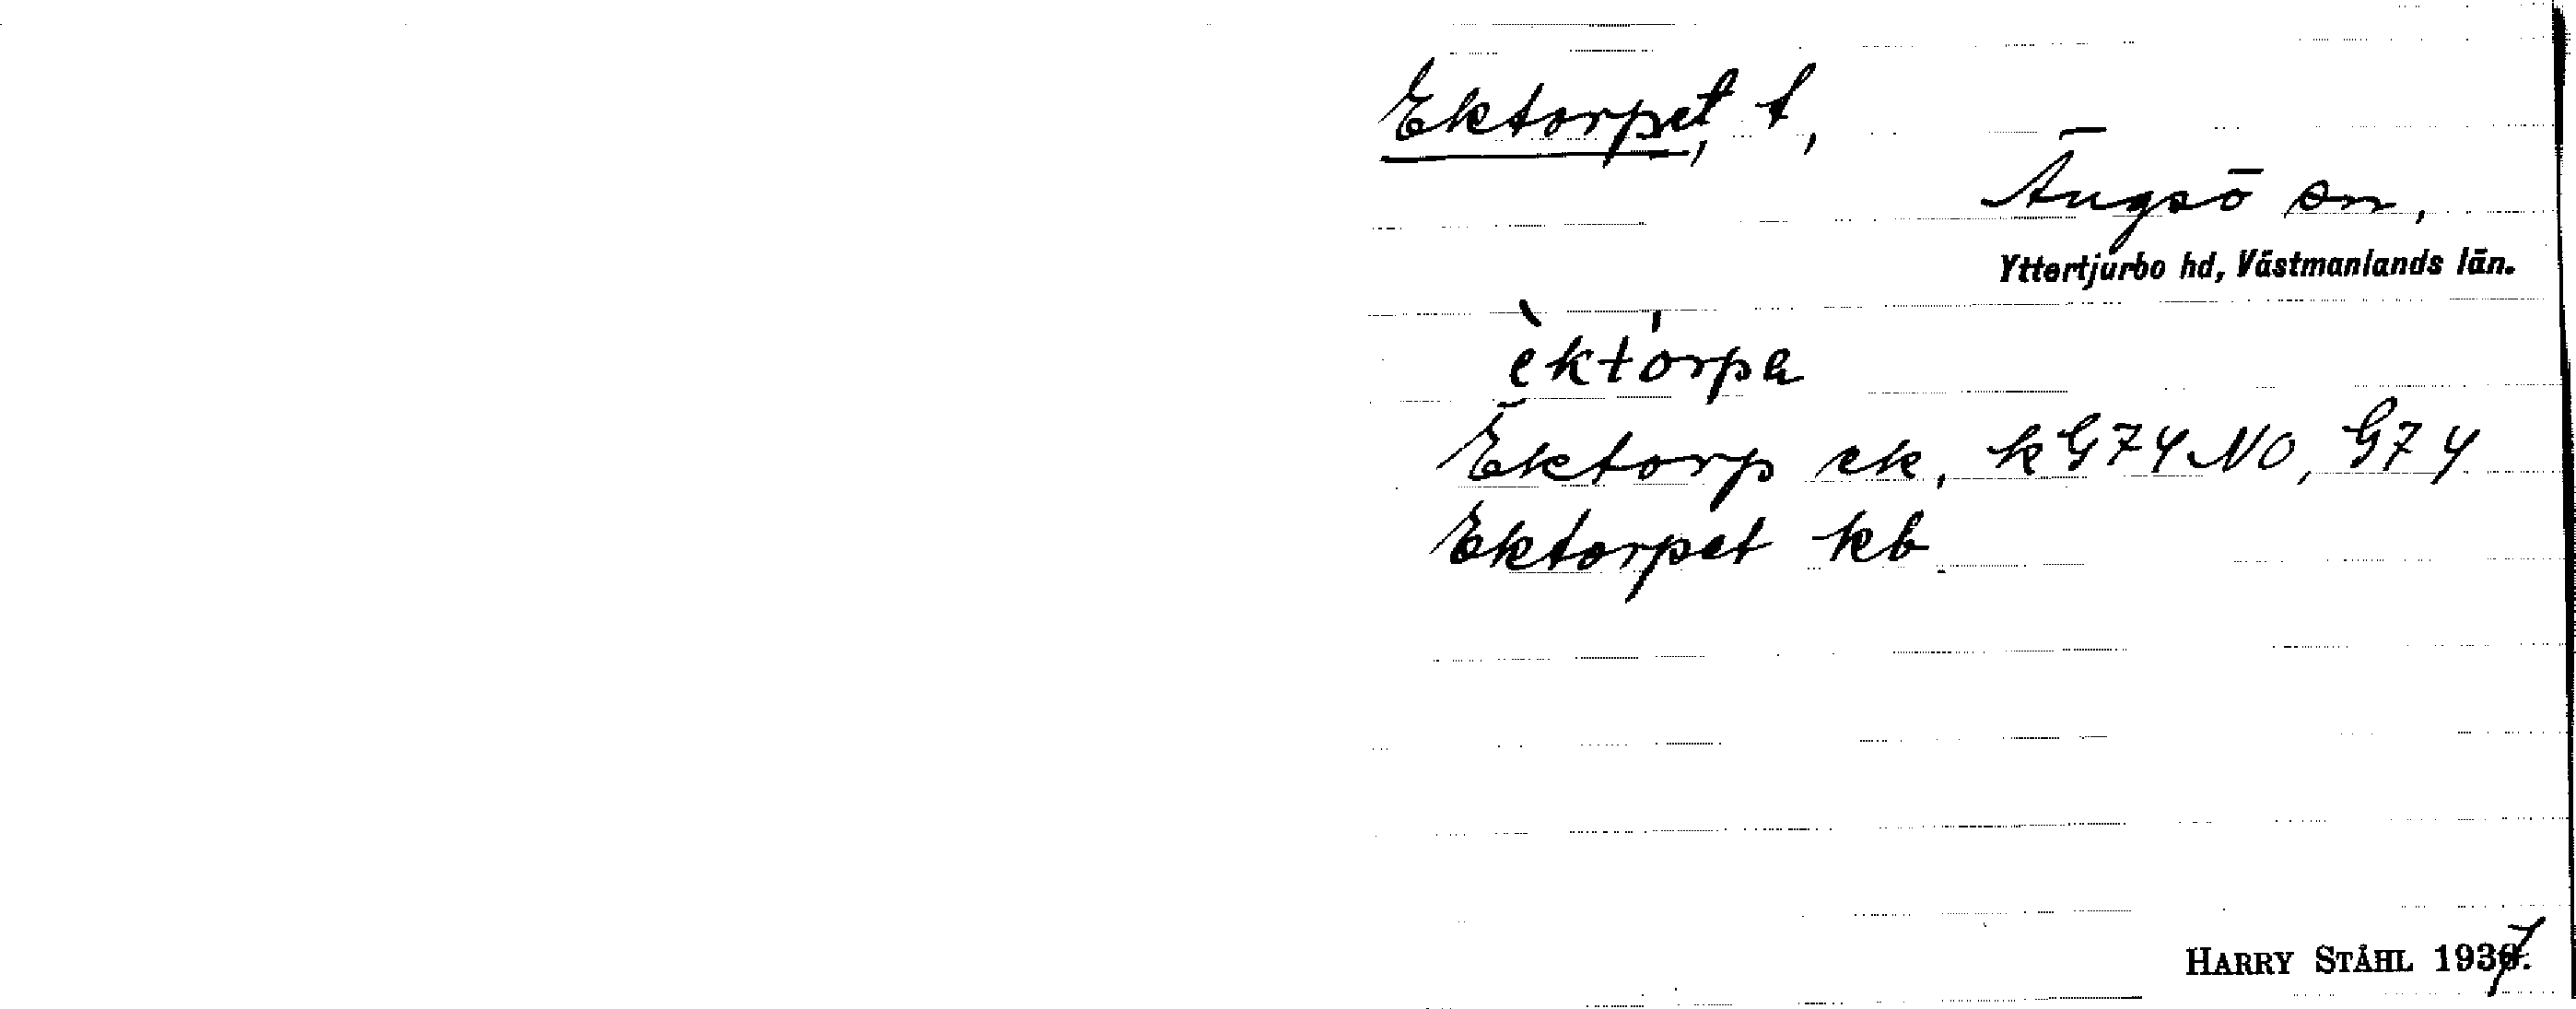 Ektorpet, t,
Ängsö sn,
Yttertjurbo hd, Västmanlands län.
èktórpa
Ektorp ek, kG74NO, G74
Ektorpet kb.
HARRY STÅHL 1937.